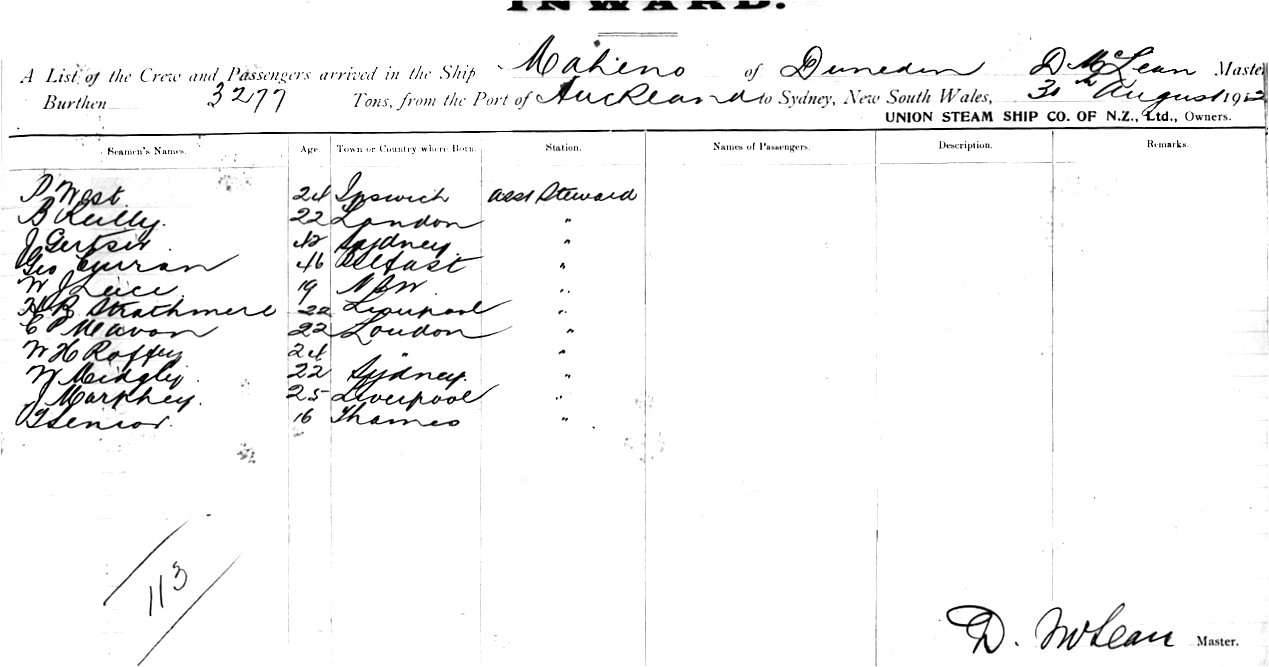 INWARD.
A List of the Crew and Passengers arrived in the Ship Maheno of Dunedin D McLean Master
Burthen 3277 Tons, from the Port of Auckland to Sydney, New South Wales, August 191
UNION STEAM SHIP CO. OF N.Z., Ltd., Owners.
Seamen's Names. Age. Town or Country where Born. Station. Names of Passengers. Description. Remarks.
P West 24 Ipswich asst Steward
B Reilly. 22 London "
J 42 Sydney. "
Geo Curran 46 Belfast "
W J 19 NSW. "
Strathmere 22 Liverpool "
E P 22 London "
W H Roffey 24 " "
W Midgly. 22 Sydney. "
J Markhey. 25 Liverpool "
Senior. 16 Thames "
113
D. McLean Master.